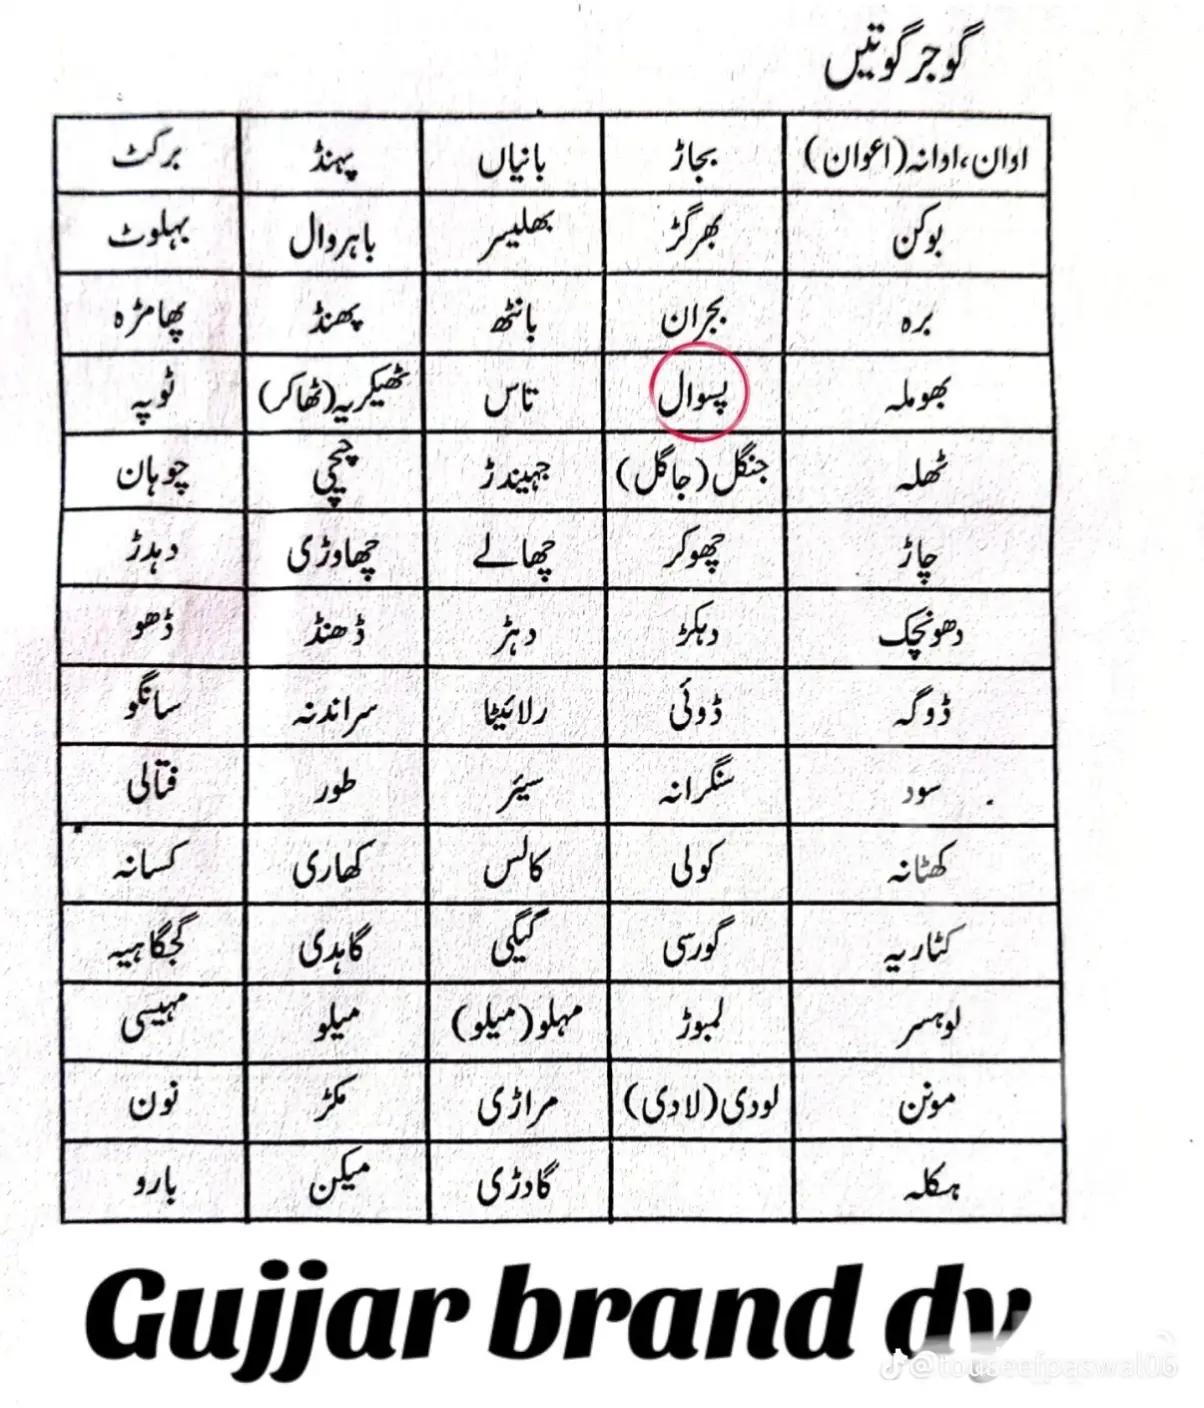 گوجر گوتیں
اوان، اوانہ (اعوان) بجاڑ بانیاں پہنڈ برکٹ
بوکن بھرگڑ بھلیسر باہروال بہلوٹ
برہ بجران بانٹھ پھنڈ پھامڑہ
بھوملہ پسوال تاس ٹھیکریہ (ٹھاکر) ٹوپہ
ٹھلہ جنگل (جاگل) جہیندڑ چیچی چوہان
چاڑ چھوکر چھالے چھاوڑی دہدڑ
دھونچک دہکڑ دہڑ ڈھنڈ ڈھو
ڈوگہ ڈوئی رلائیٹا سراندنہ سانگو
سود سنگرانہ سیئر طور فتالی
کھٹانہ کولی کالس کھاری کسانہ
کٹاریہ گورسی گیگی گاہدی گجگاہیہ
لوہسر لمبوڑ مہلو (میلو) میلو مہیسی
مونن لودی (لادی) مراڑی مکڑ نون
ہکلہ گاوڑی میکن بارو
Gujjar brand dy
@touseefpaswal06